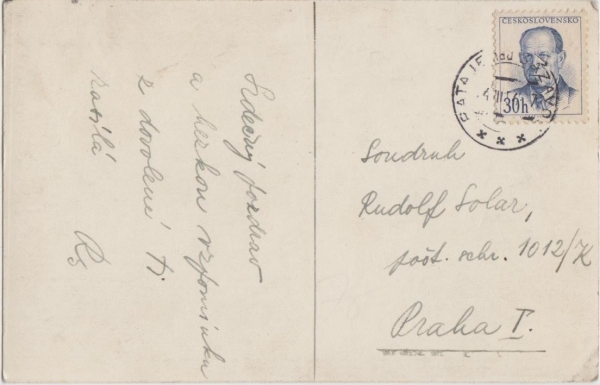 Srdečný pozdrav
a hezkou vzpomínku
z dovolené Ti
posílá
ČESKOSLOVENSKO
30h
RATAJE nad SÁZAVOU
Soudruh
Rudolf Solar,
pošt. schr. 1012/K
Praha I.